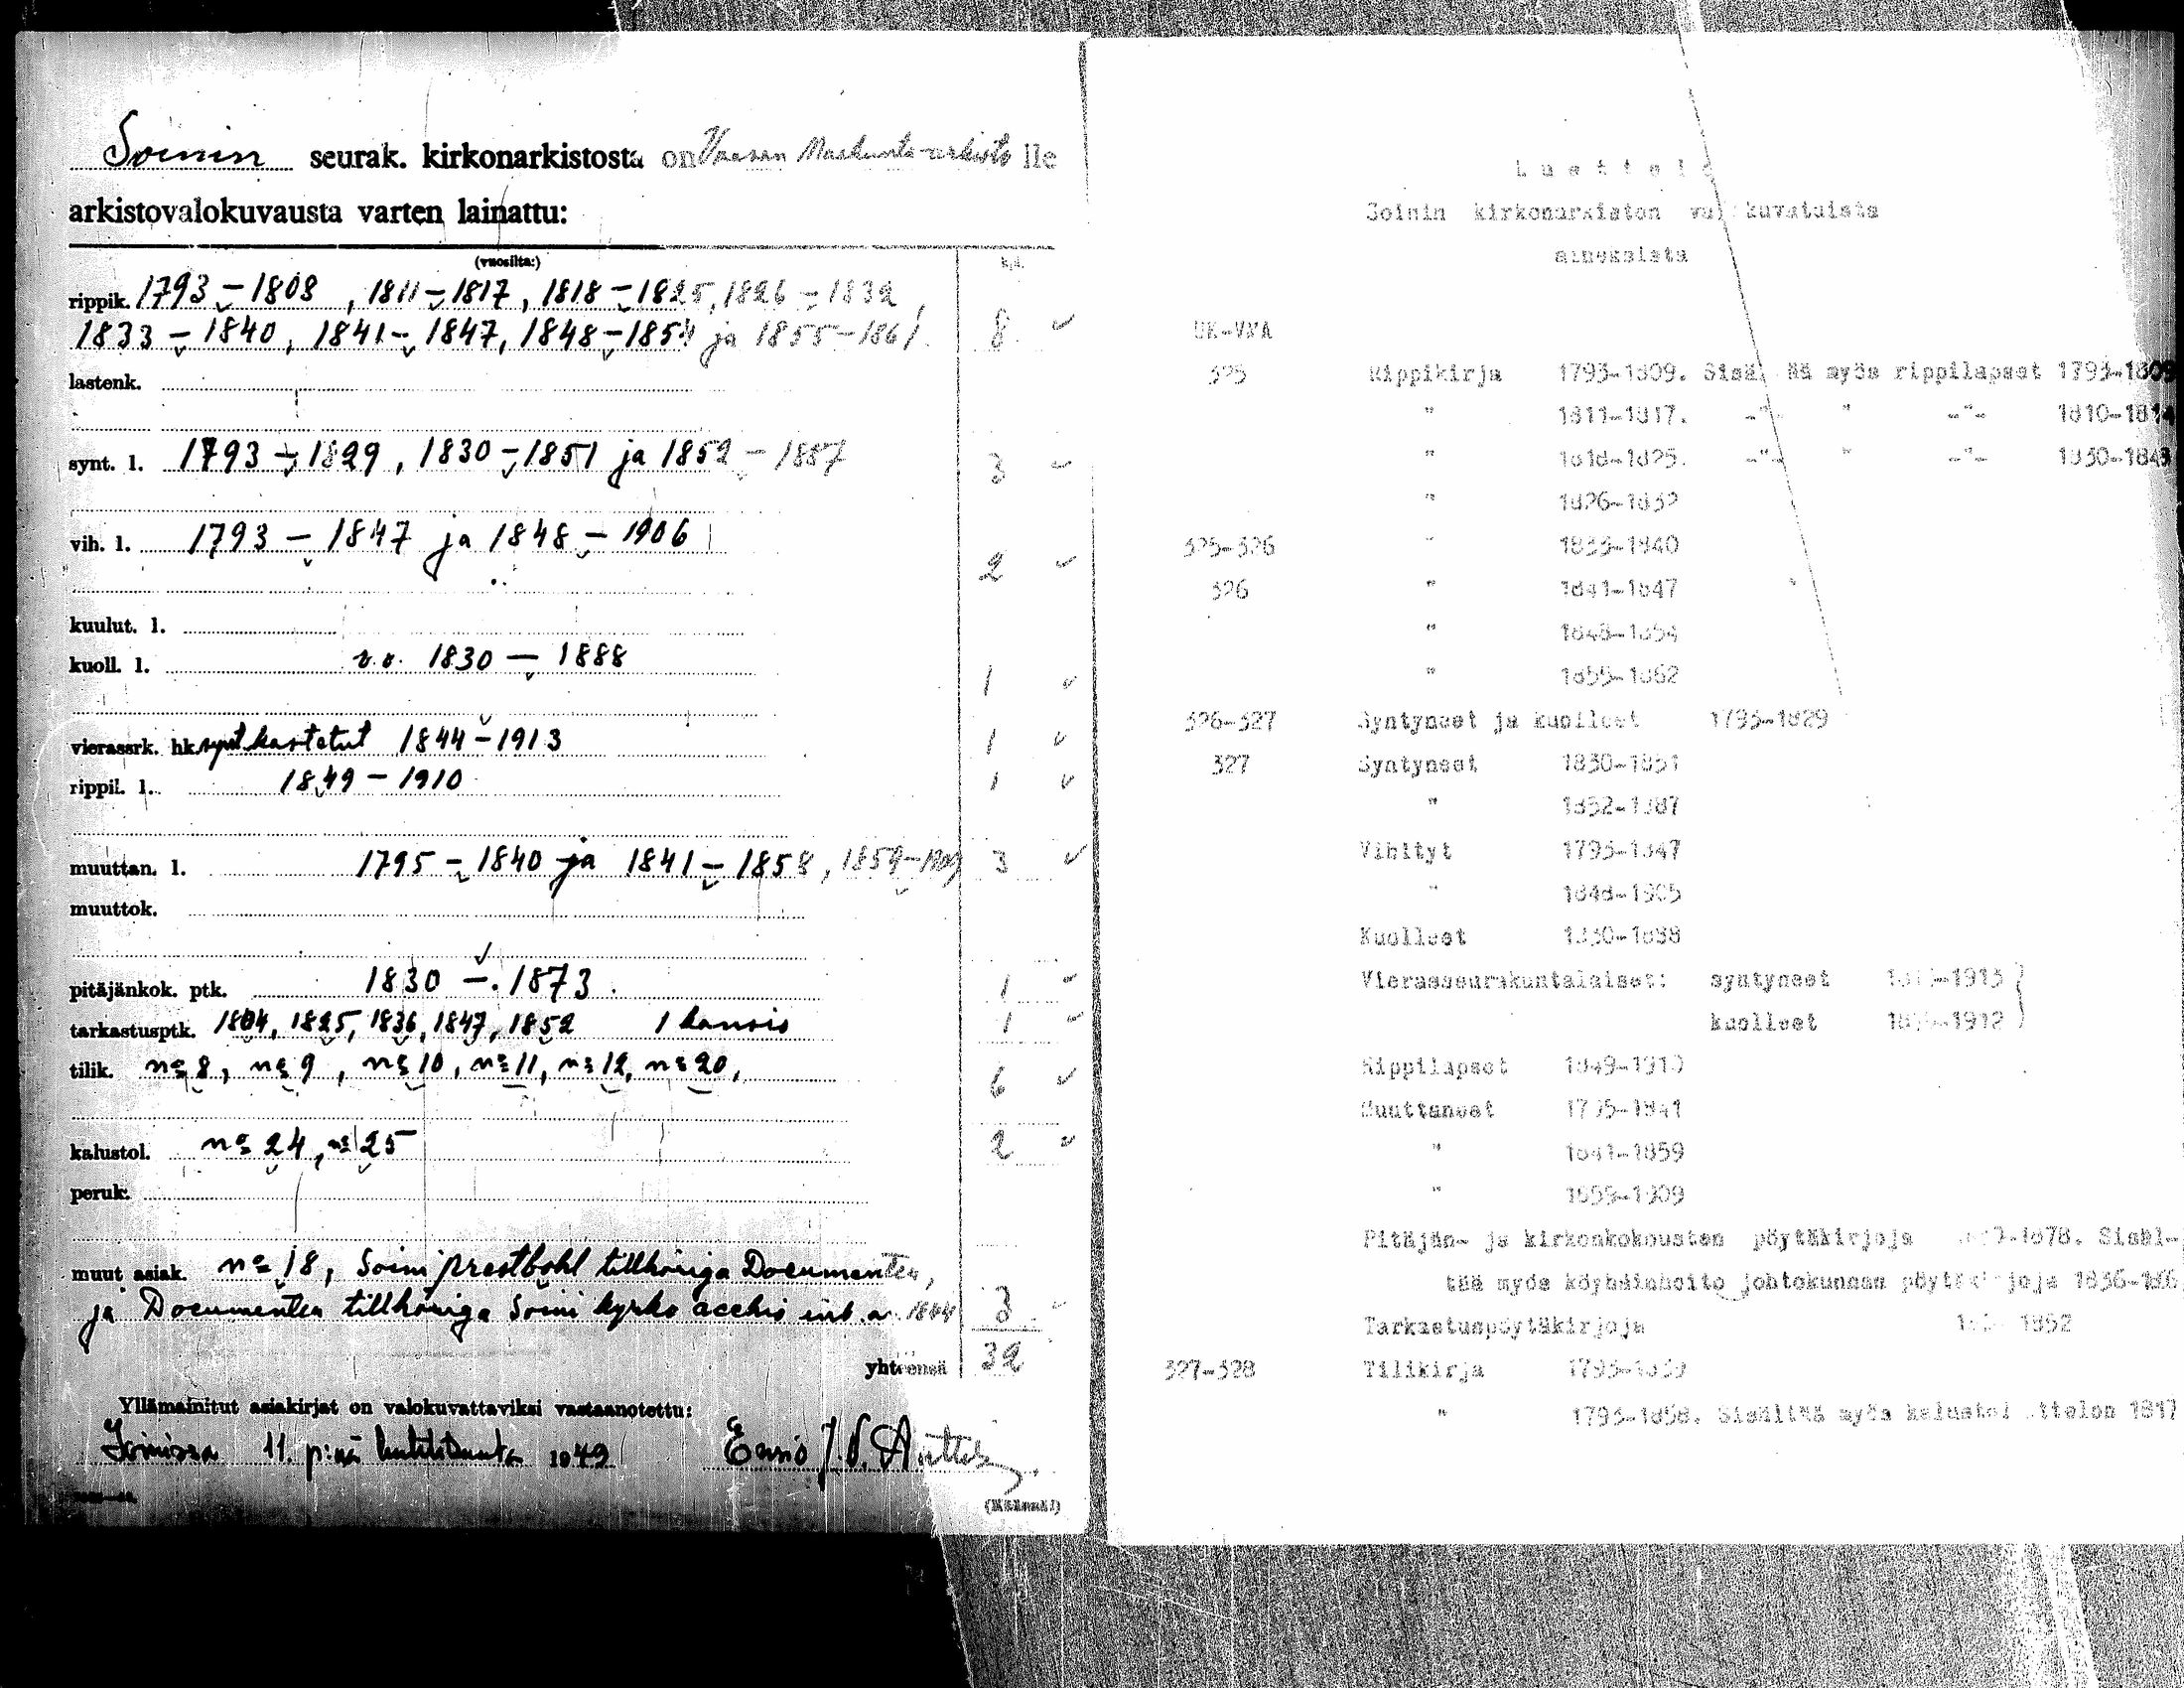 Soinin seurak. kirkonarkistosta on Vaasan Maakunta-arkisto lle
arkistovalokuvausta varten lainattu:
(vuosilta:) kpl.
rippik. 1793 – 1808 , 1811 – 1817 , 1818 – 1825, 1826 – 1832 ,
1833 – 1840 , 1841 – 1847, 1848 – 1854 ja 1855 – 1861. 8
lastenk.
synt. l. 1793 – 1829 , 1830 – 1851 ja 1852 – 1887 3
vih. l. 1793 – 1847 ja 1848 – 1906 2
kuulut. l.
kuoll. l. v.v. 1830 – 1888 1
vierassrk. hk. synt kastetut 1844 – 1913 1
rippil. l. 1849 – 1910 1
muuttan. l. 1795 – 1840 ja 1841 – 1858 , 1859 – 1909 3
muuttok.
pitäjänkok. ptk. 1830 – 1873 . 1
tarkastusptk. 1804, 1825, 1836, 1847, 1852 1 kansio 1
tilik. nº 8 , nº 9 , nº 10 , nº 11, nº 12, nº 20, 6
kalustol. nº 24 , nº 25 2
peruk.
muut asiak. nº 18 , Soini prestbohl tillhöriga Documenten,
ja Documenten tillhöriga Soini kyrko 3
yhteensä 32
Yllämainitut asiakirjat on valokuvattaviksi vastaanotettu:
Soinissa 11. p:nä 1949 J.V.
Luettelo
Soinin kirkonarkiston valokuvatuista
aineksista
UK-VMA
325 Rippikirja 1793-1809. Sisältää myös rippilapset 1793-1809
" 1811-1817. -"- " -"- 1810-1814
" 1818-1825. -"- " -"- 1830-1843
" 1826-1832
325-326 " 1833-1840
326 " 1841-1847
" 1848-1854
" 1855-1862
326-327 Syntyneet ja kuolleet 1793-1829
327 Syntyneet 1830-1851
" 1852-1887
Vihityt 1793-1847
" 1848-1905
Kuolleet 1830-1888
Vierasseurakuntalaiset: syntyneet -1913
kuolleet -1912
Rippilapset 1849-1910
Muuttaneet 1795-1841
" 1841-1859
" 1859-1909
Pitäjän- ja kirkonkokousten pöytäkirjoja -1878. Sisäl-
tää myös köyhäinhoito johtokunnan pöytäkirjoja 1836-186
Tarkastuspöytäkirjoja 1852
327-328 Tilikirja 1793-1839
" 1793-1858. Sisältää myös kalustoluettelon 1817